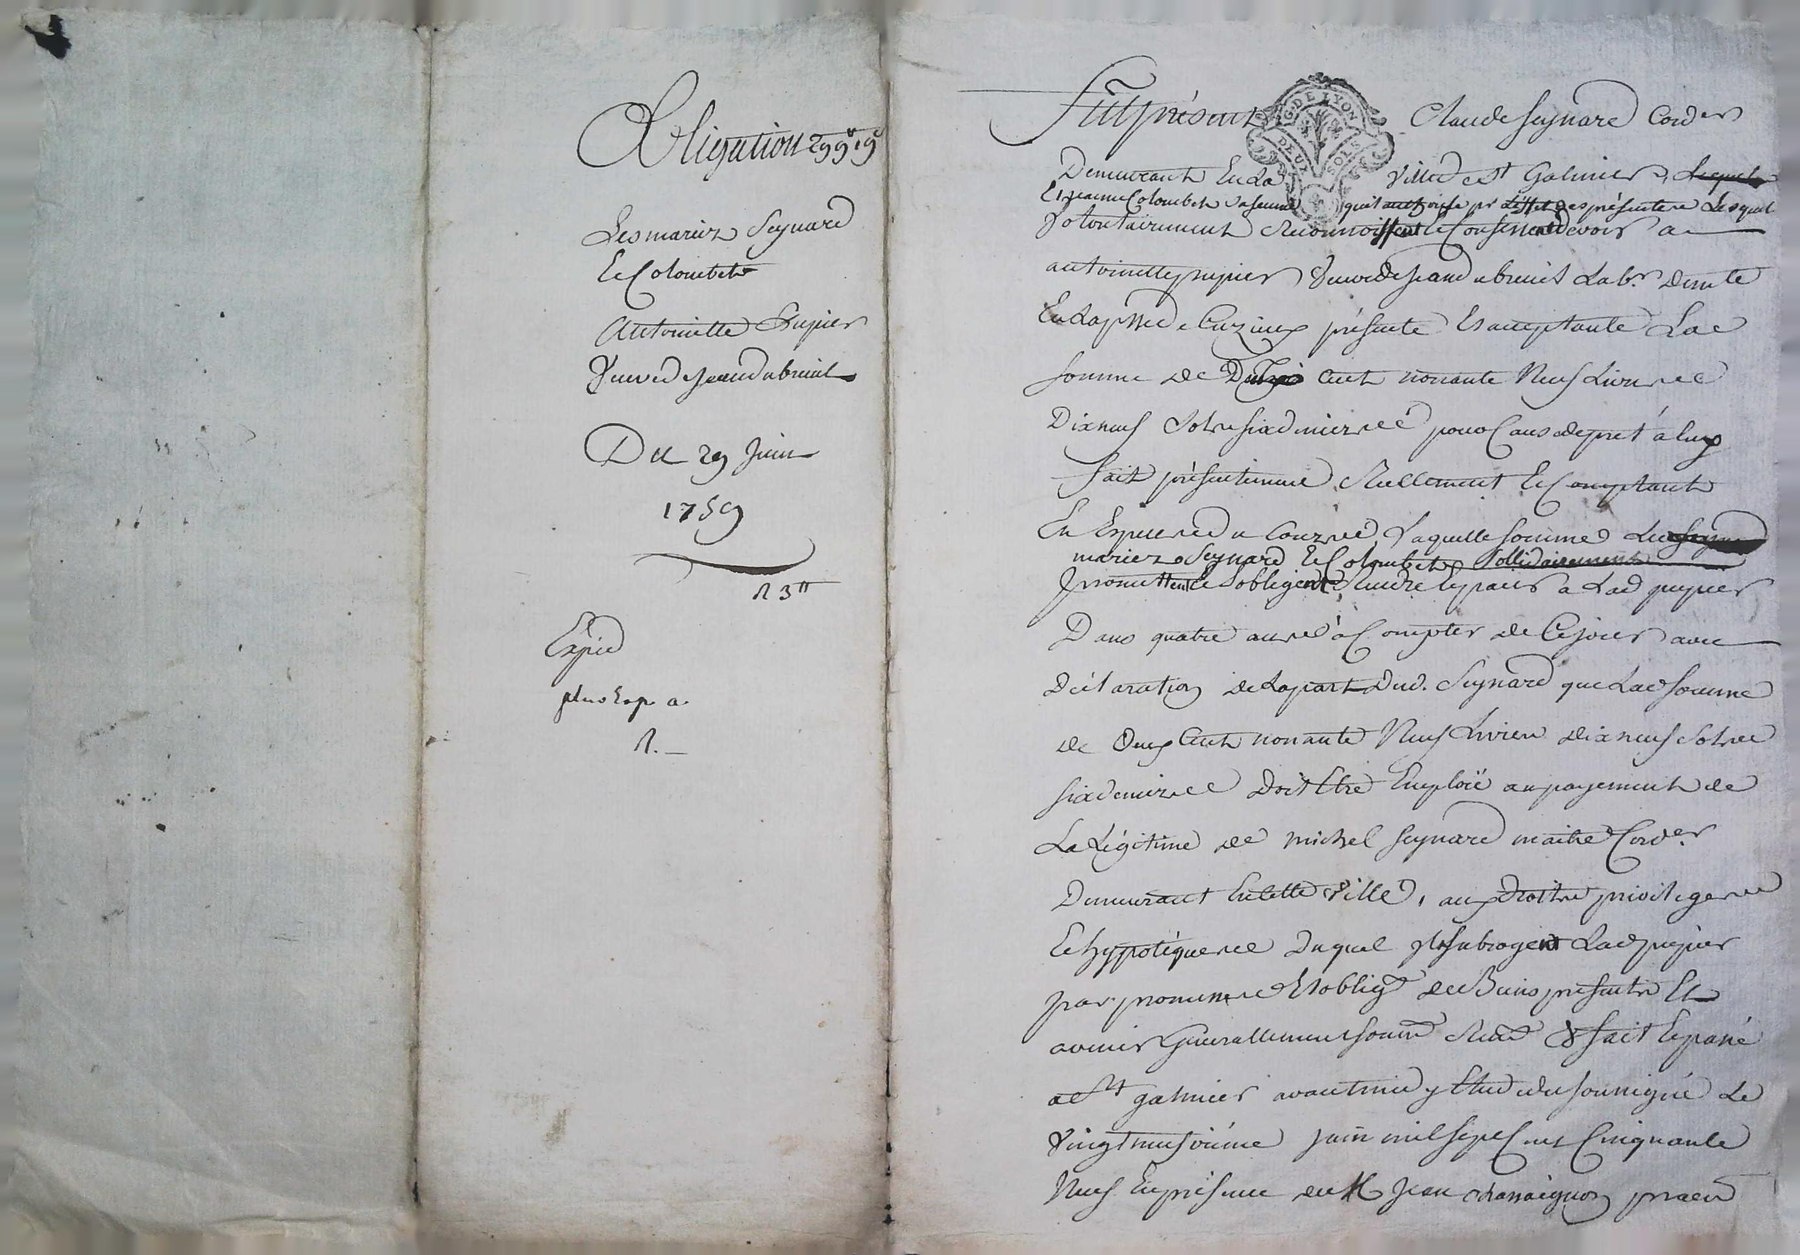 Obligation 299# 19s
Les mariez Seynard
Et Colombet
Antoinette Pupier
Veuve de Jean dubreuil
Du 29 Juin
1759
R 3#
Expié
plus Exp. a.
R. —
Fut présent Claude Seynard Corder
G. DE LYON
DEUX SOLS
Demeurant En La Ville de St Galmier, Lequel
Et Jeanne Colombet sa femme qu'il authorise pr L'effet des présentes Lesquels
Volontairement Reconnoissent et Confessent devoir a
antoinette pupier Veuve de Jean dubreuil Labr. demte
En La psse de Cuzieux présente Et acceptante La
somme de Deux Cent nonante Neuf Livres
Dix neuf Sols six deniers pour Cause de prêt à Eux
fait présentement Réellement Et Comptant
En Espèces de Cours, Laquelle somme Les
mariez Seynard Et Colombet Sollidairement
promettent Et s'obligent Rendre Et païer a Lad pupier
Dans quatre années à Compter de Ce jour avec
Déclaration de La part Dud. Seynard que Lad somme
de Deux Cent nonante Neuf Livres dix neuf Sols
six deniers Doit Etre Emploïé au payement de
La Légitime de michel Seynard maitre Corder.
Demeurant En Cette Ville, aux droits privileges
Et hypotéques Duquel Ils subrogent Lad pupier
par promesse Et obligõn de Biens présents Et
avenir Generallement soumõn Renõn & fait Et passé
a St galmier avant midy Etude du soussigné Le
Vingt neufvième juin mil sept Cent Cinquante
Neuf En présence de Me Jean chassaignon